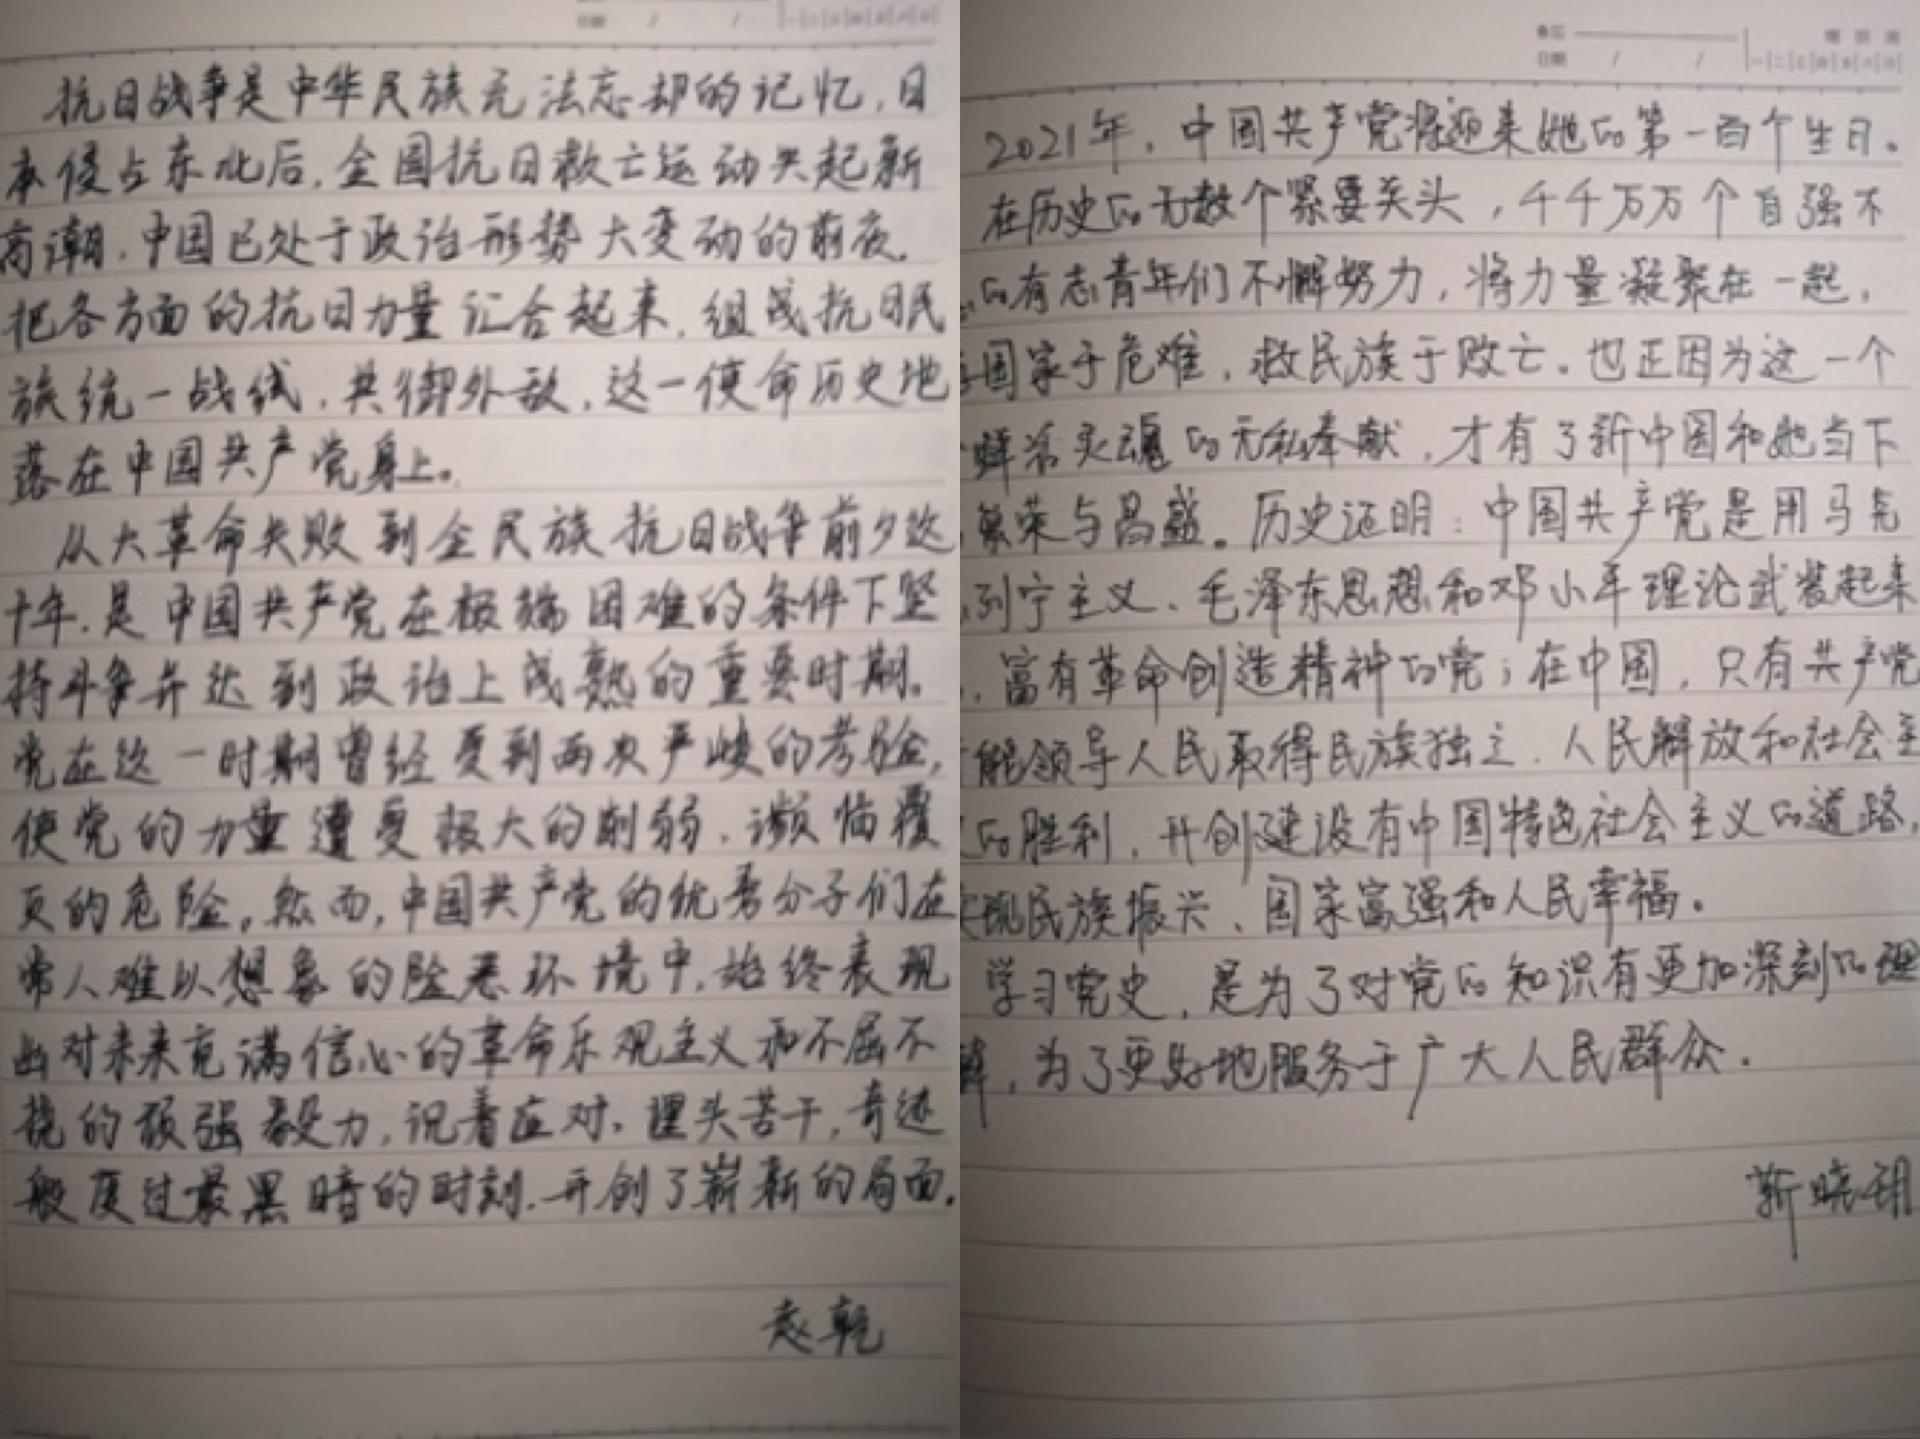 日期 / /
抗日战争是中华民族无法忘却的记忆,日
本侵占东北后,全国抗日救亡运动兴起新
高潮,中国已处于政治形势大变动的前夜,
把各方面的抗日力量汇合起来,组成抗日民
族统一战线,共御外敌,这一使命历史地
落在中国共产党身上。
从大革命失败到全民族抗日战争前夕这
十年,是中国共产党在极端困难的条件下坚
持斗争并达到政治上成熟的重要时期。
党在这一时期曾经受到两次严峻的考验,
使党的力量遭受极大的削弱,濒临覆
灭的危险。然而,中国共产党的优秀分子们在
常人难以想象的险恶环境中,始终表现
出对未来充满信心的革命乐观主义和不屈不
挠的顽强毅力,沉着应对,埋头苦干,奇迹
般度过最黑暗的时刻,开创了崭新的局面。
赵乾
备忘
日期 / /
一 二 三 四 五 六 日
2021年,中国共产党将迎来她的第一百个生日。
在历史的无数个紧要关头,千千万万个自强不
的有志青年们不懈努力,将力量凝聚在一起,
国家于危难,救民族于败亡。也正因为这一个
鲜活灵魂的无私奉献,才有了新中国和她当下
繁荣与昌盛。历史证明:中国共产党是用马克
列宁主义、毛泽东思想和邓小平理论武装起来
,富有革命创造精神的党;在中国,只有共产党
能领导人民取得民族独立、人民解放和社会主
的胜利,开创建设有中国特色社会主义的道路,
实现民族振兴、国家富强和人民幸福。
学习党史,是为了对党的知识有更加深刻的理
解,为了更好地服务于广大人民群众。
靳晓玥